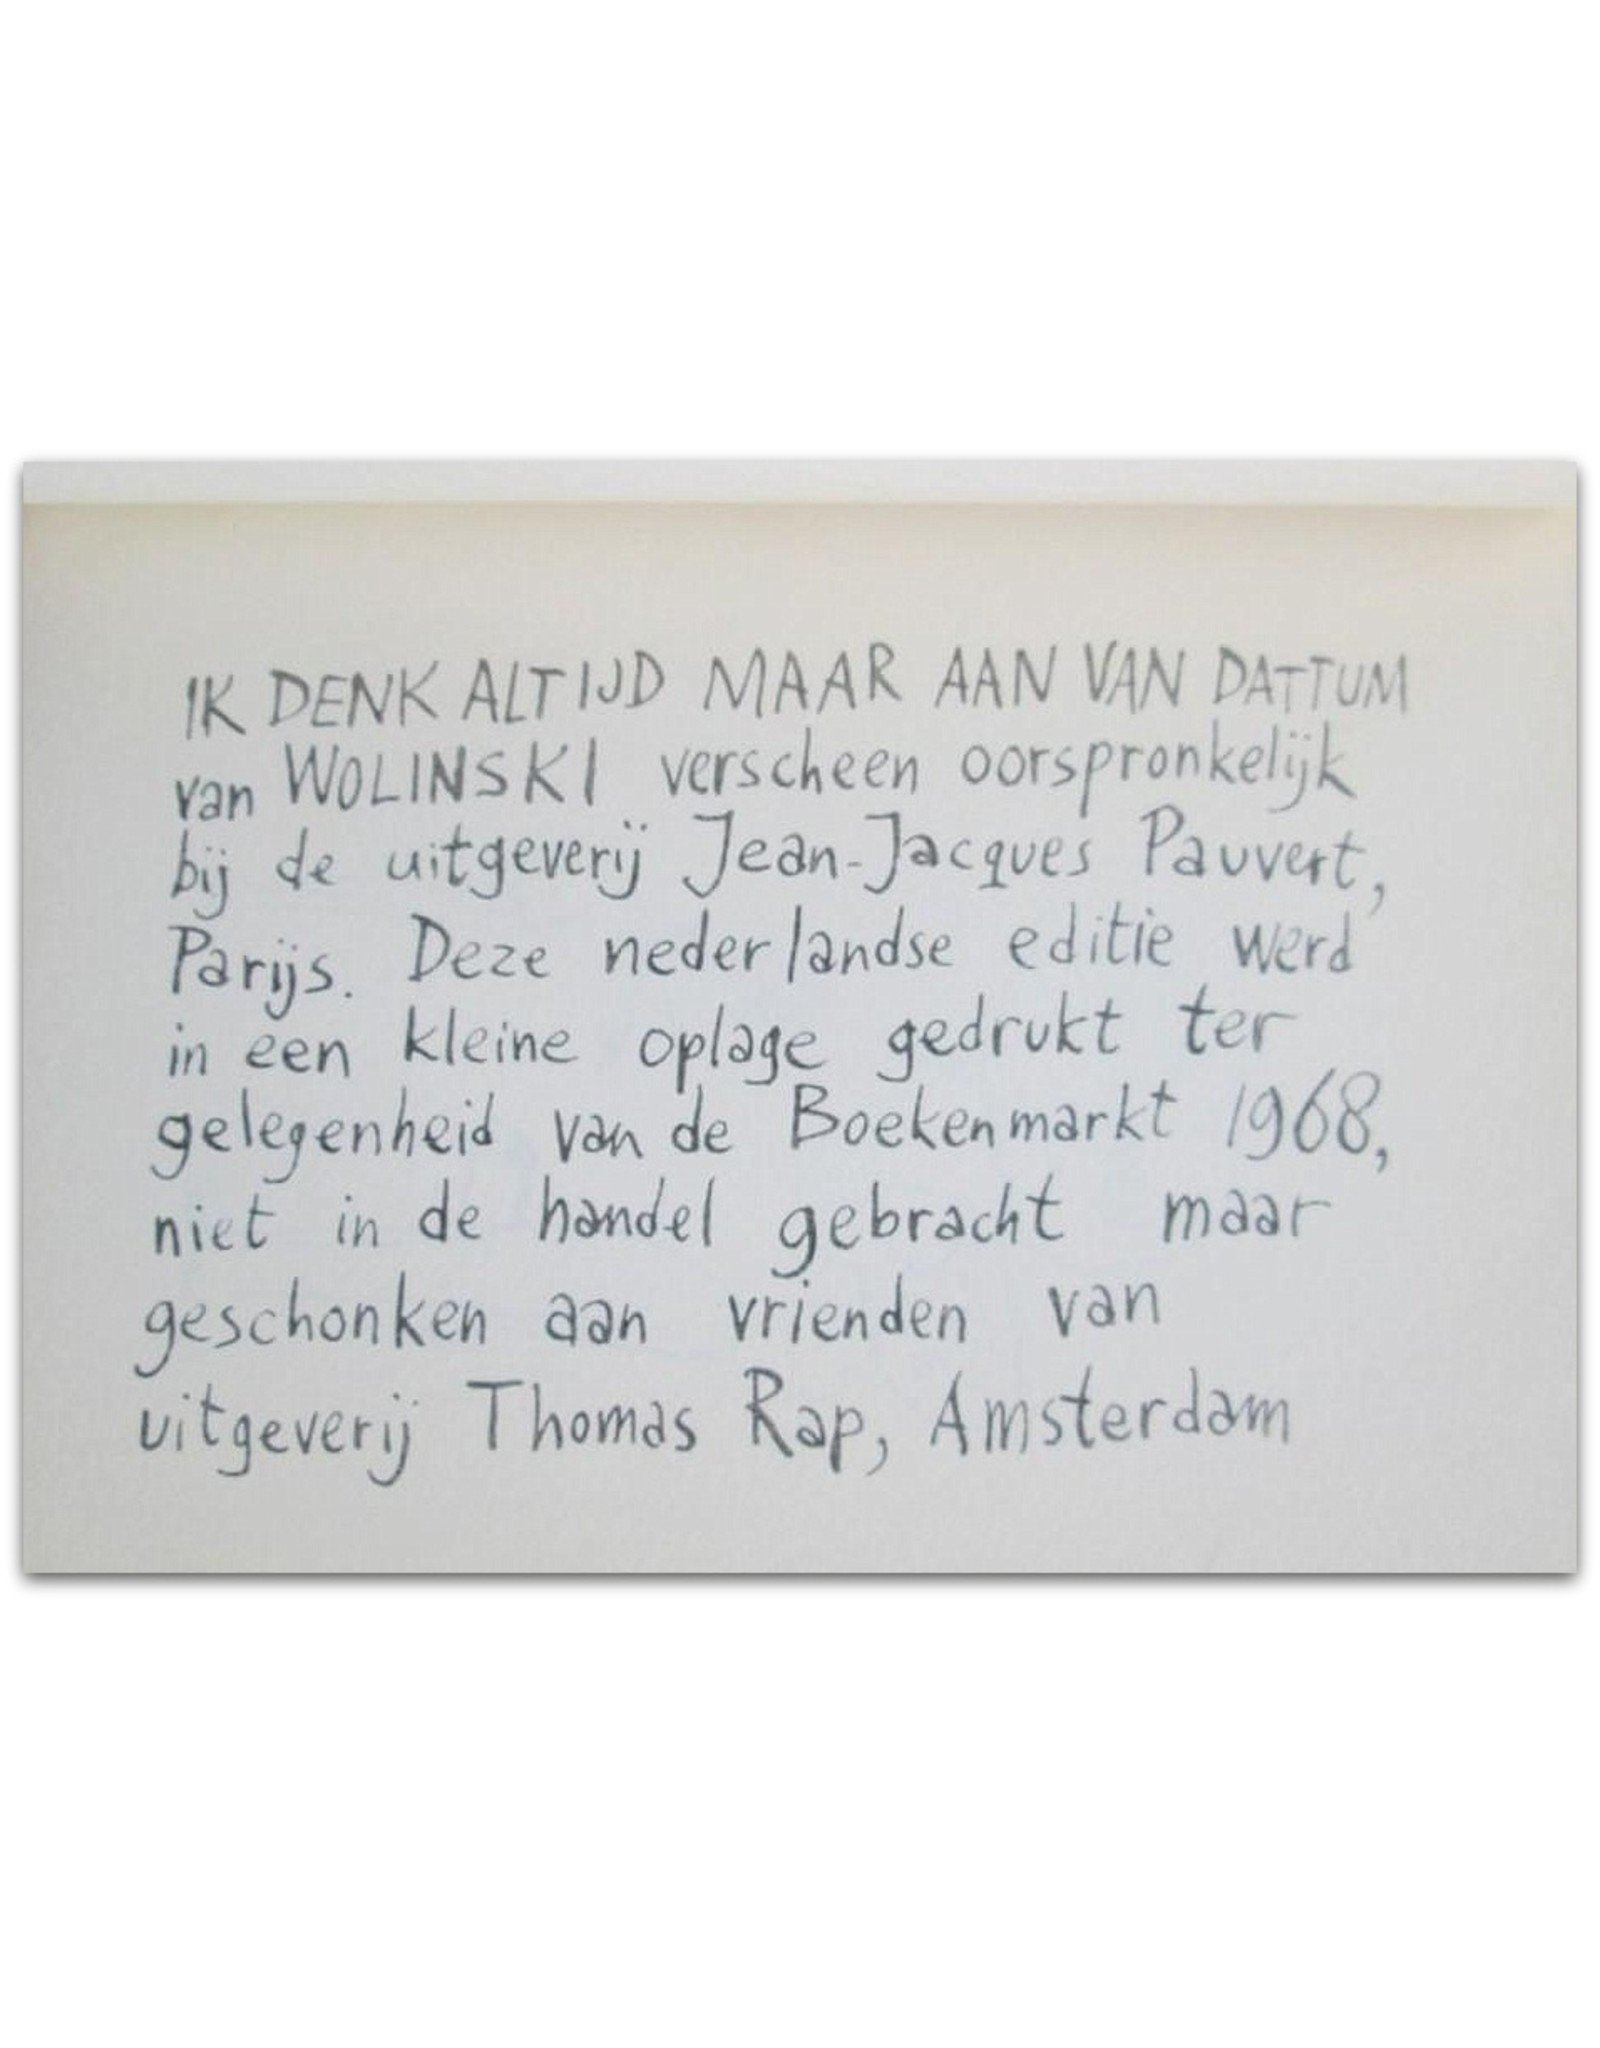 IK DENK ALTIJD MAAR AAN VAN DATTUM
van WOLINSKI verscheen oorspronkelijk
bij de uitgeverij Jean-Jacques Pauvert,
Parijs. Deze nederlandse editie werd
in een kleine oplage gedrukt ter
gelegenheid van de Boekenmarkt 1968,
niet in de handel gebracht maar
geschonken aan vrienden van
uitgeverij Thomas Rap, Amsterdam